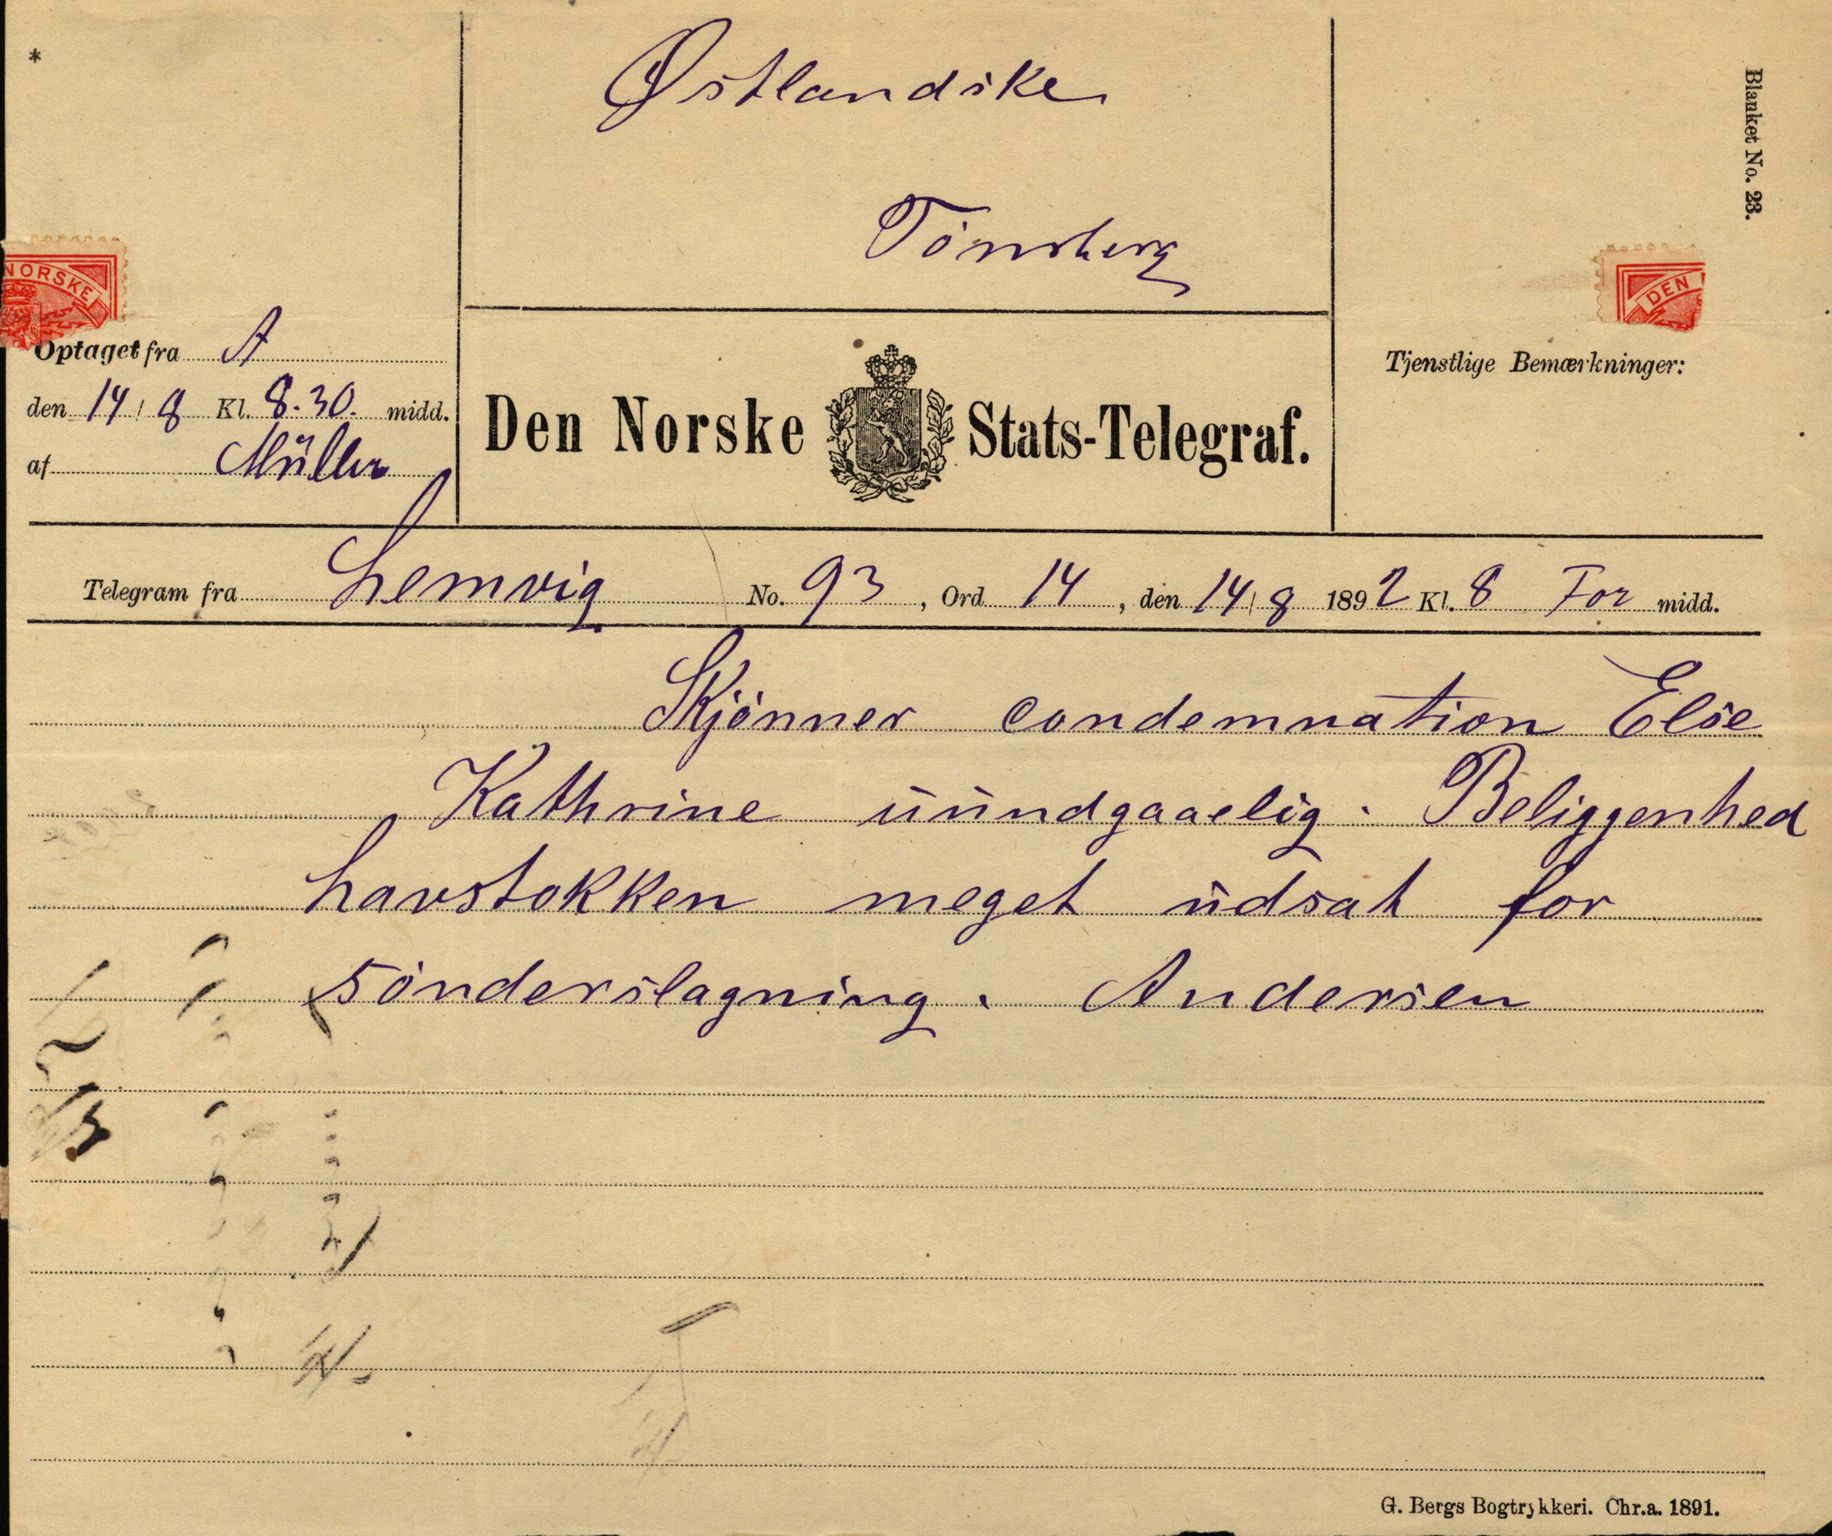 *
Østlandske
Tönsberg
Blanket No. 23.
NORSKE
DEN
Optaget fra A
den 14/8 Kl. 8.30. midd.
af Müller
Den Norske Stats-Telegraf.
Tjenstlige Bemærkninger:
Telegram fra Lemvig No. 93, Ord 14, den 14/8 1892 Kl. 8 For midd.
Skjönner condemnation Else
Kathrine uundgaaelig. Beliggenhed
havstokken meget udsat for
sönderslagning. Andersen
G. Bergs Bogtrykkeri. Chr.a. 1891.